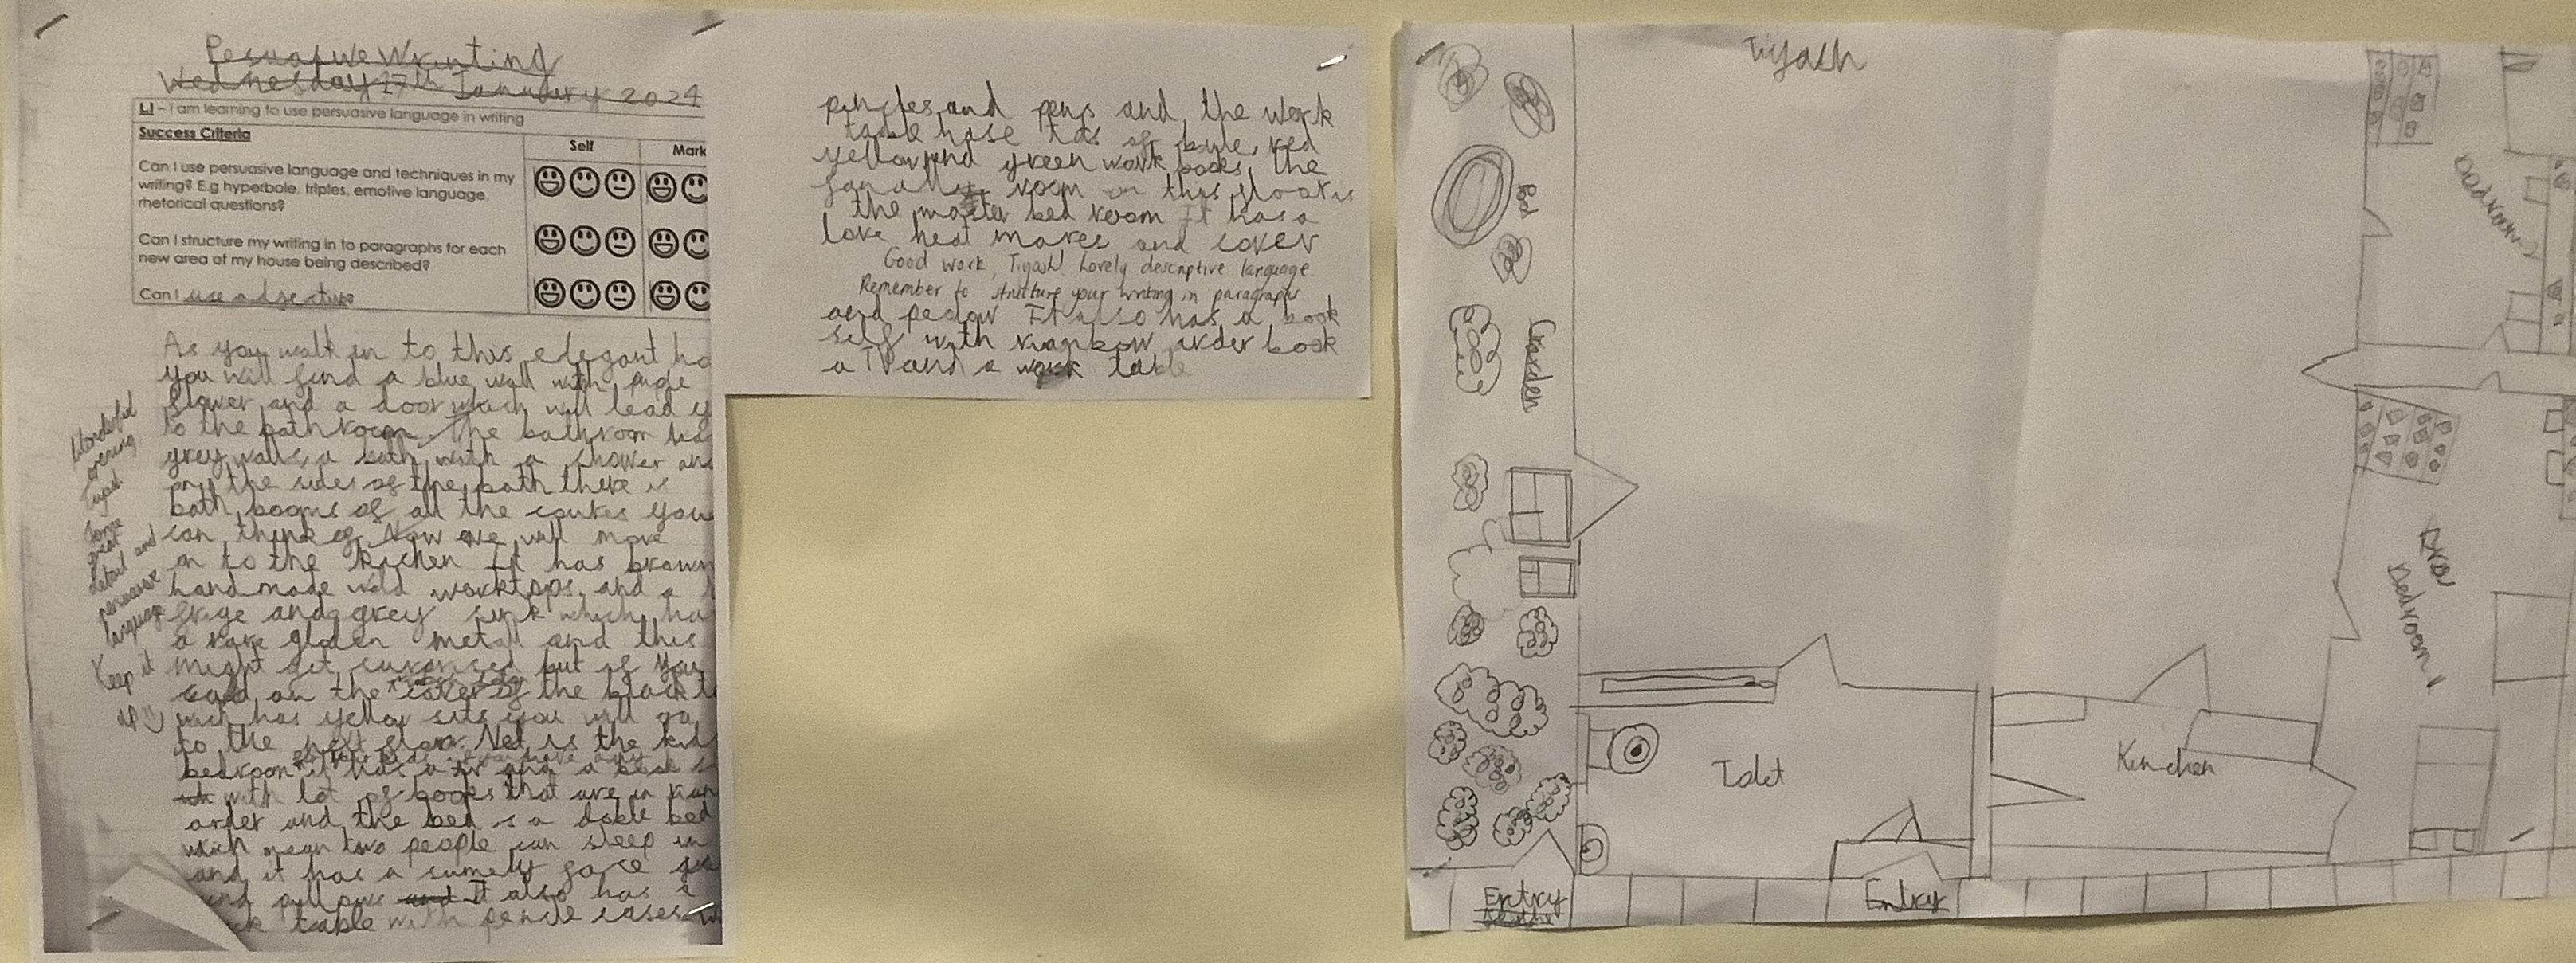 Persuasive Wrinting
Wednesday 17th January 2024
LI – I am learning to use persuasive language in writing
Success Criteria
Self
Mark
Can I use persuasive language and techniques in my
writing? E.g hyperbole, triples, emotive language,
rhetorical questions?
Can I structure my writing in to paragraphs for each
new area of my house being described?
Can I use adjective?
As you walk in to this elegant ho
you will find a blue wall with
flower and a door which will lead y
to the bathroom. The bathroom has
grey walls, a bath with a shower and
on the sides of the bath there is
bath booms of all the coulers you
can think of Now we will move
on to the kitchen It has brown
hand made worktops and a
frige and grey sink which ha
a rare glden metal and this
might get surprised but if you
on the of the black
wich has yellow you will go
to the next floor. Next is the kids
bedroom it has a tv and a book
with lot of books that are in
order and the bed is a doble bed
which mean two people can sleep in
and it has a face
and pillows and It also has a
table with pencle cases
Wonderful
opening
Tiyash.
Some
great
detail and
persuasive
language
Keep it
up :)
pencles and pens and the work
table hase of blue, red
yellow and green work books. the
room on this floor is
the master bed room It has a
love heat and cover
Good work, Tiyash! Lovely descriptive language.
Remember to structure your writing in paragraphs
and pillow It also has a book
self with order book
a TV and a work table
Tiyash
Pool
Garden
Entry
Toilet
Entry
Kinchen
Bedroom 2
Bedroom 1